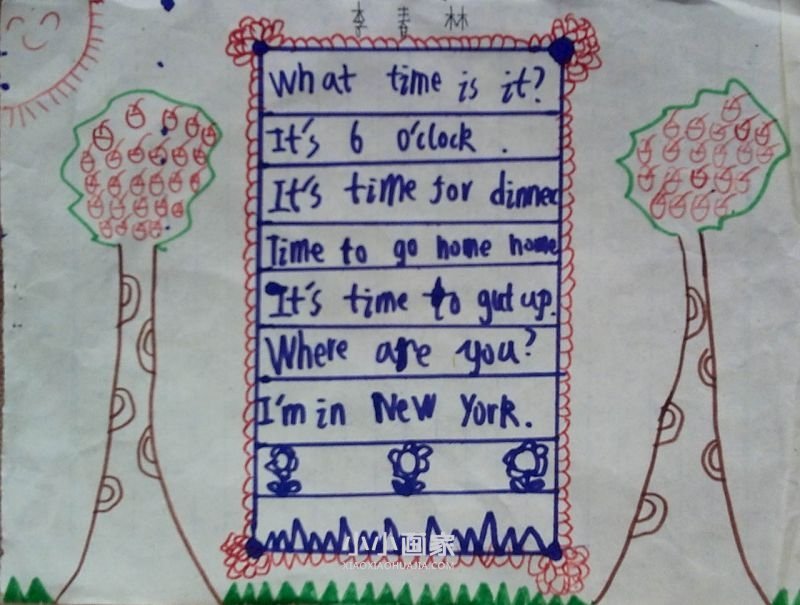 李春林
What time is it?
It's 6 o'clock .
It's time for dinner
Time to go home home
It's time to gut up.
Where are you?
I'm in New York.
小小画家
XIAOXIAOHUAJIA.COM